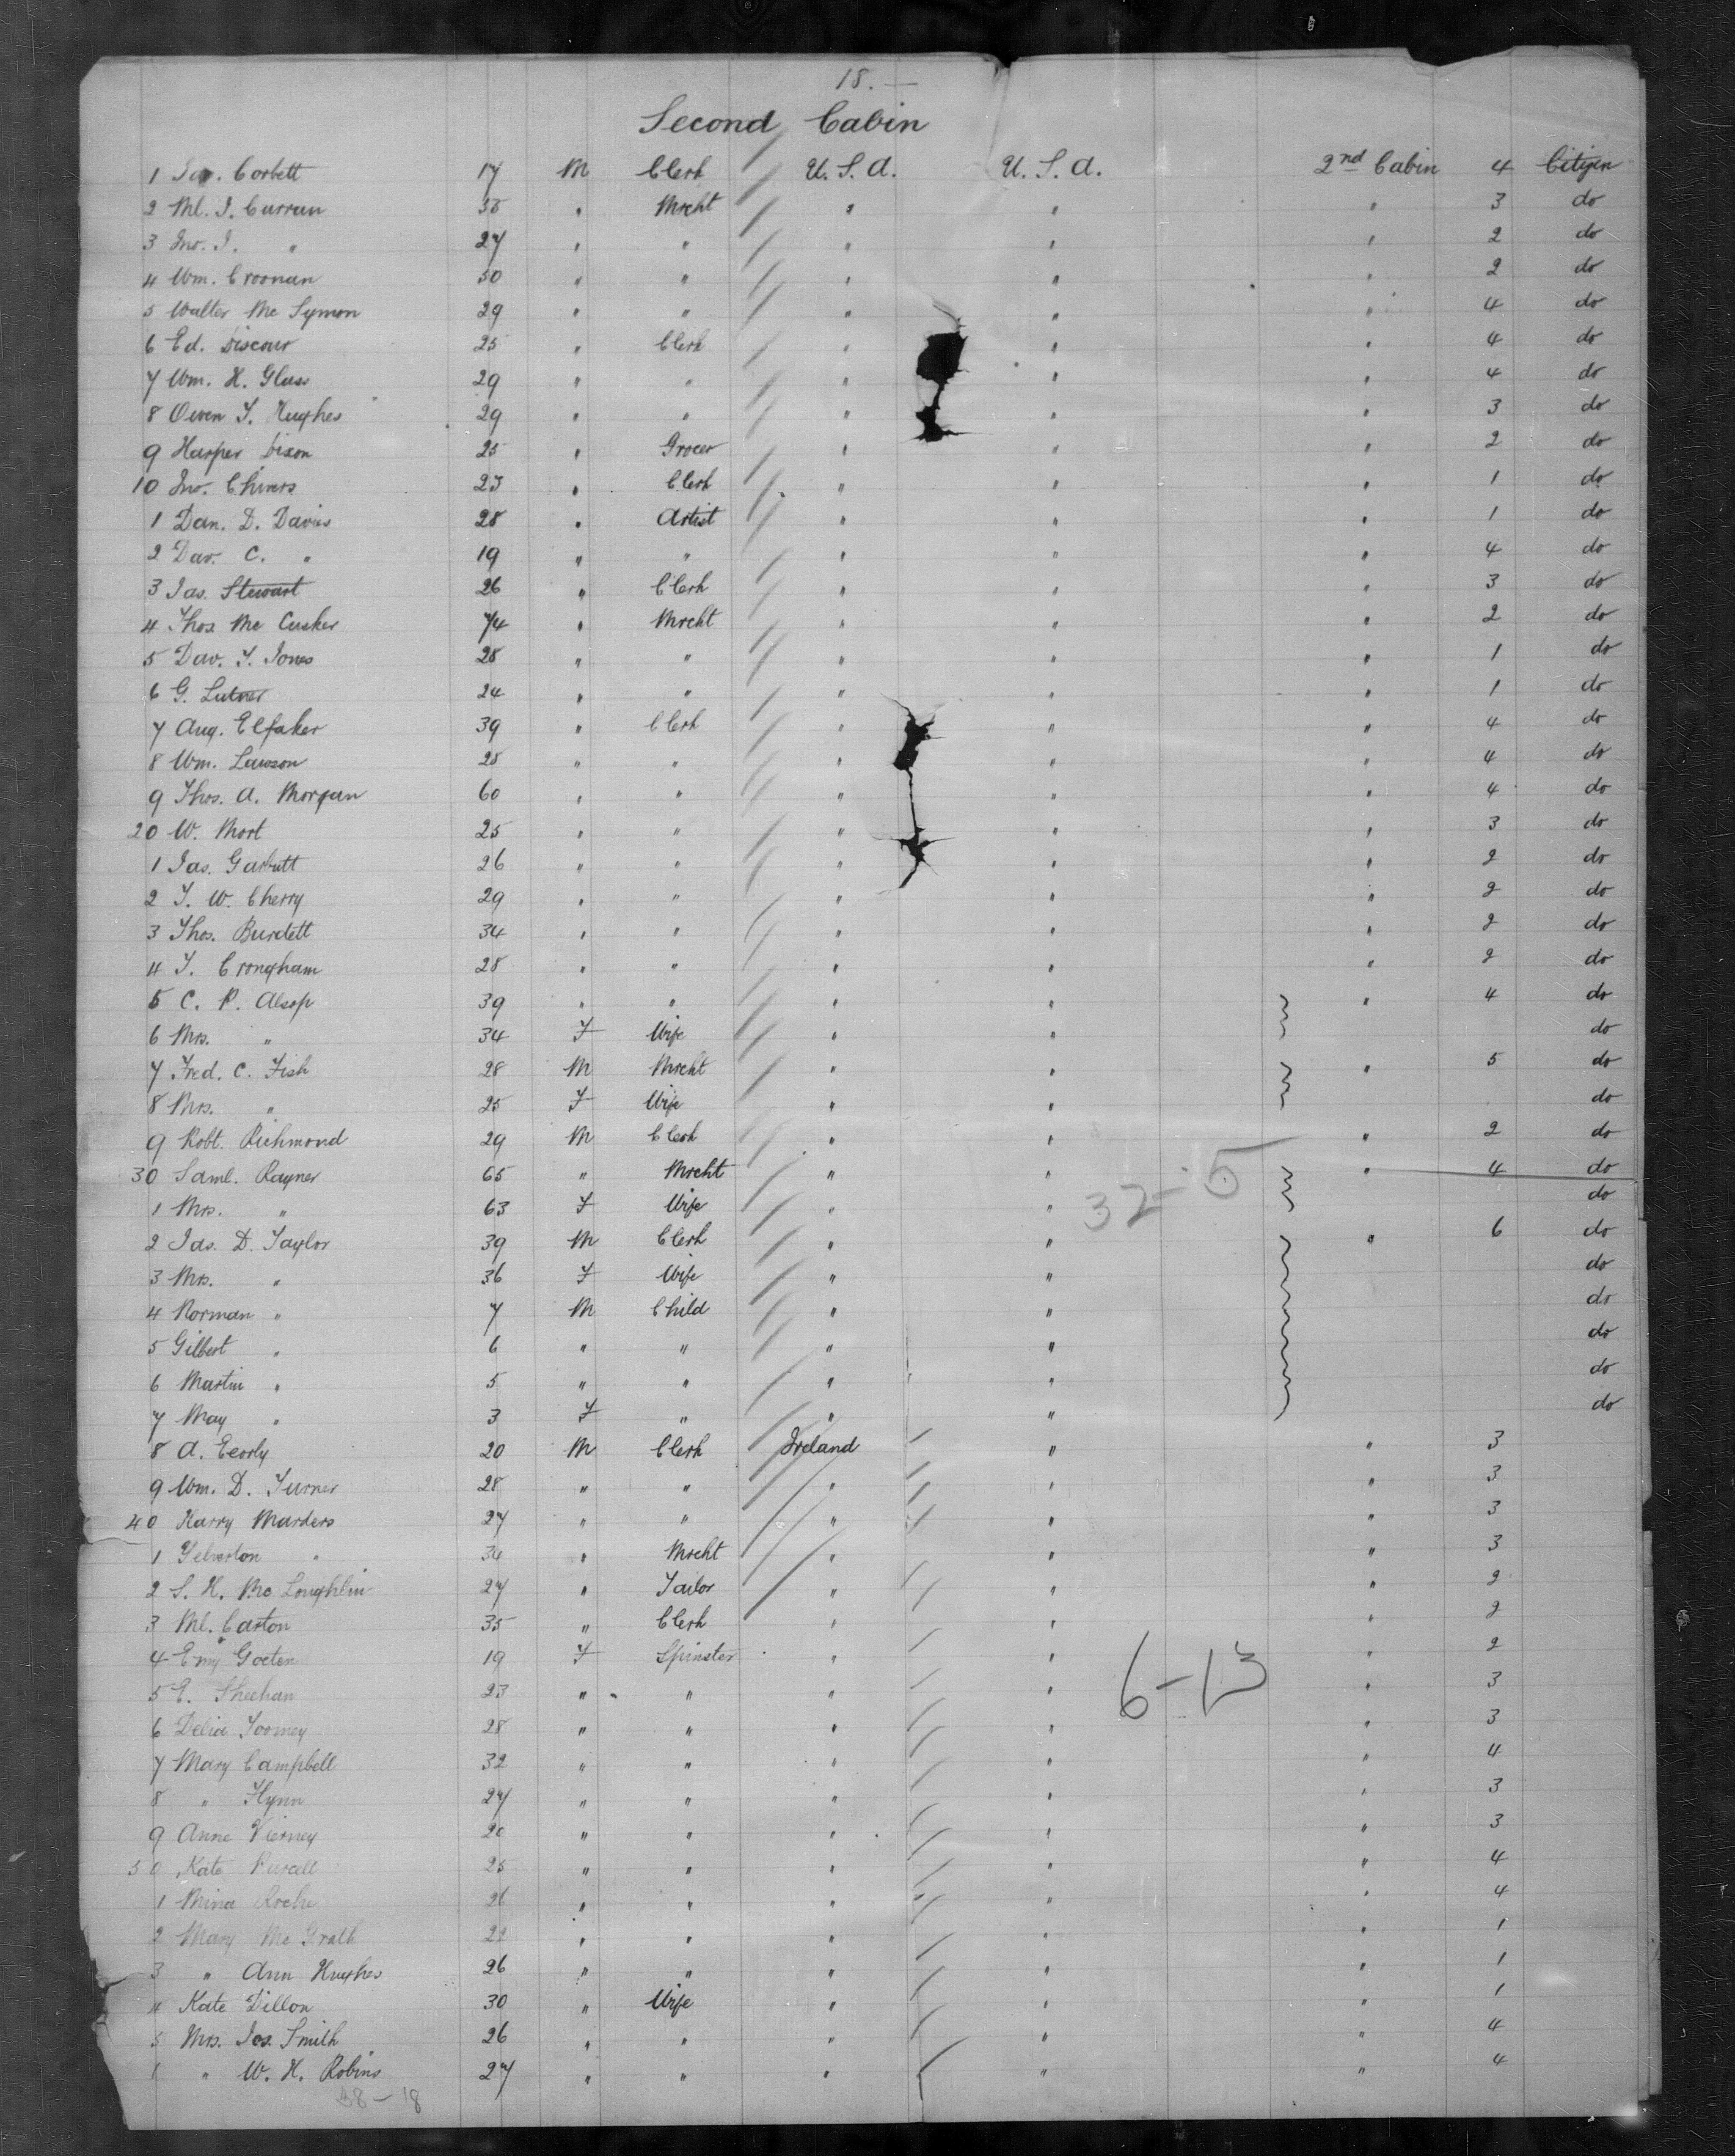 18. —
Second Cabin
1 Jas. Corbett 17 M Clerk U. S. A. U. S. A. 2nd Cabin 4 Citizen
2 Ml. J. Curran 35 " Mrcht " " " 3 do
3 Jno. J. " 27 " " " " " 2 do
4 Wm. Croonan 50 " " " " " 2 do
5 Walter Mc Symon 29 " " " " " 4 do
6 Ed. Discour 25 " Clerk " " " 4 do
7 Wm. H. Glass 29 " " " " " 4 do
8 Owen T. Hughes 29 " " " " " 3 do
9 Harper Dixon 25 " Grocer " " " 2 do
10 Jno. Chivers 23 " Clerk " " " 1 do
1 Dan. D. Davies 28 " Artist " " " 1 do
2 Dav. C. " 19 " " " " " 4 do
3 Jas. Stewart 26 " Clerk " " " 3 do
4 Thos Mc Cusker 74 " Mrcht " " " 2 do
5 Dav. T. Jones 28 " " " " " 1 do
6 G. Lutner 24 " " " " " 1 do
7 Aug. Elfaker 39 " Clerk " " " 4 do
8 Wm. Lawson 25 " " " " " 4 do
9 Thos. A. Morgan 60 " " " " " 4 do
20 W. Mort 25 " " " " " 3 do
1 Jas. Garbutt 26 " " " " " 2 do
2 T. W. Cherry 29 " " " " " 2 do
3 Thos. Burdett 34 " " " " " 2 do
4 T. Crongham 28 " " " " " 2 do
5 C. P. Alsop 39 " " " " " 4 do
6 Mrs. " 34 F Wife " " do
7 Fred. C. Fish 28 M Mrcht " " " 5 do
8 Mrs. " 25 F Wife " " do
9 Robt. Richmond 29 M Clerk " " " 2 do
30 Saml. Rayner 65 " Mrcht " " " 4 do
32-5
1 Mrs. " 63 F Wife " " do
2 Jas. D. Taylor 39 M Clerk " " " 6 do
3 Mrs. " 36 F Wife " " do
4 Norman " 7 M Child " " do
5 Gilbert " 6 " " " " do
6 Martin " 5 " " " " do
7 May " 3 F " " " do
8 A. 20 M Clerk Ireland " " 3
9 Wm. D. Turner 28 " " " " " 3
40 Harry Marders 27 " " " " " 3
1 Yelverton " 34 " Mrcht " " " 3
2 S. H. Mc Loughlin 27 " Tailor " " " 2
3 Ml. Carton 35 " Clerk " " " 2
4 Emy Goeten 19 F Spinster " " " 2
6-13
5 E. Sheehan 23 " " " " " 3
6 Delia Toomey 28 " " " " " 3
7 Mary Campbell 32 " " " " " 4
8 " Flynn 27 " " " " " 3
9 Anne Vierney 20 " " " " " 3
50 Kate 25 " " " " " 4
1 Mina Roche 26 " " " " " 4
2 Mary Mc Grath 22 " " " " " 1
3 " Ann Hughes 26 " " " " " 1
4 Kate Dillon 30 " Wife " " " 1
5 Mrs. Jos. Smith 26 " " " " " 4
" W. H. Robins 27 " " " " " 4
38-18